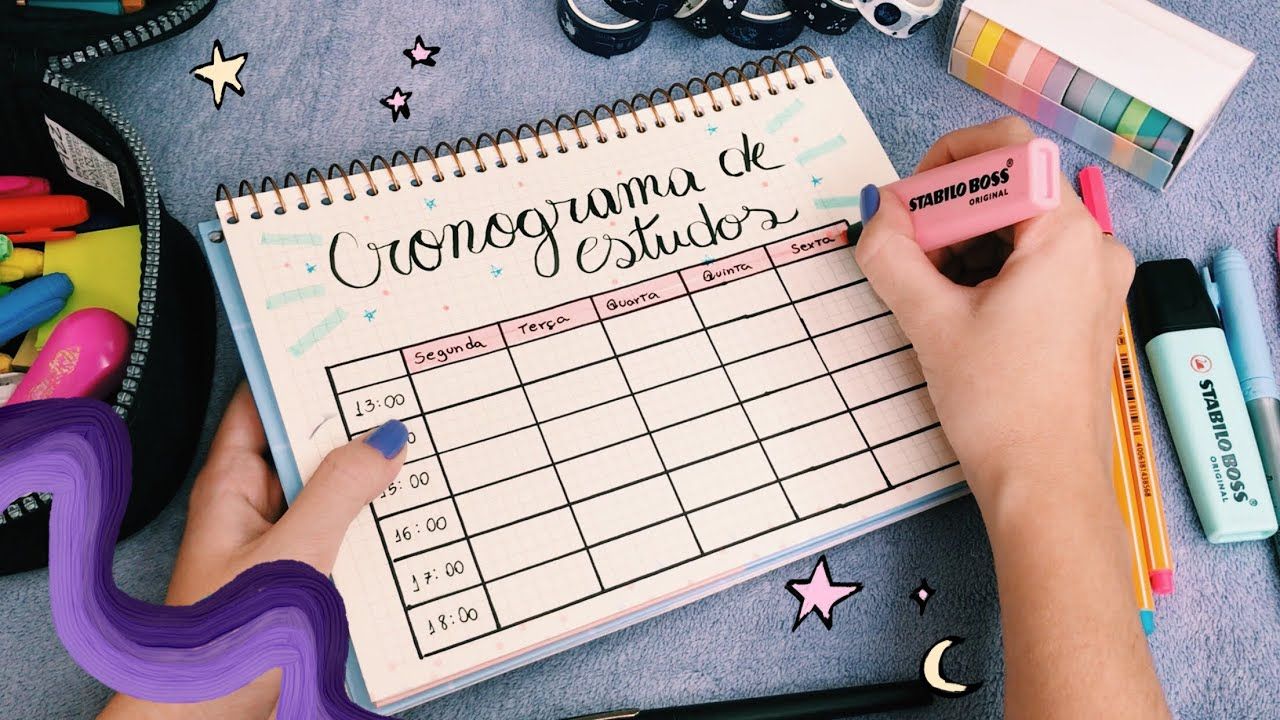 Cronograma de
estudos
Segunda Terça Quarta Quinta Sexta
13:00
15:00
16:00
17:00
18:00
STABILO BOSS
ORIGINAL
STABILO BOSS
ORIGINAL